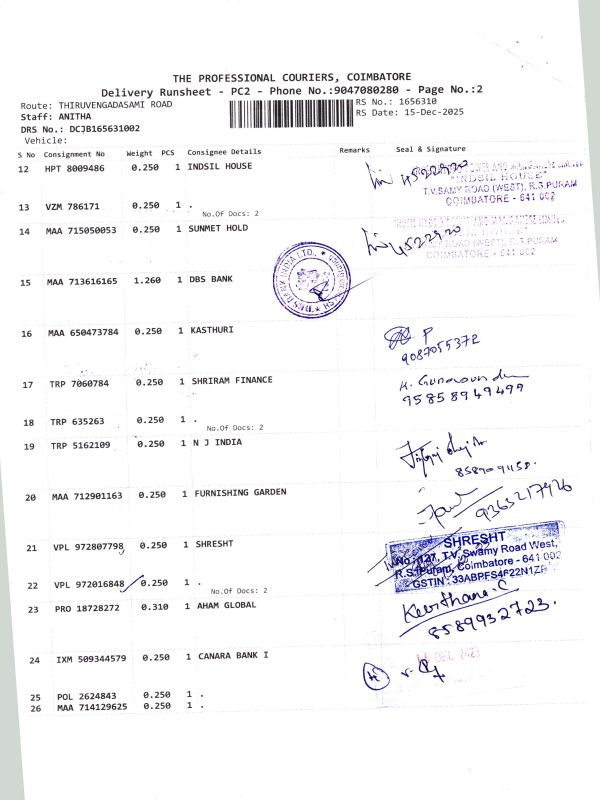 THE PROFESSIONAL COURIERS, COIMBATORE
Delivery Runsheet - PC2 - Phone No.:9047080280 - Page No.:2
Route: THIRUVENGADASAMI ROAD
RS No.: 1656310
Staff: ANITHA
RS Date: 15-Dec-2025
DRS No.: DCJB165631002
Vehicle:
S No Consignment No Weight PCS Consignee Details Remarks Seal & Signature
12 HPT 8009486 0.250 1 INDSIL HOUSE
"INDSIL HOUSE"
T.V.SAMY ROAD (WEST), R.S.PURAM
COIMBATORE - 641 002
13 VZM 786171 0.250 1 .
No.Of Docs: 2
14 MAA 715050053 0.250 1 SUNMET HOLD
ROAD (WEST), R.S.PURAM
COIMBATORE - 641 002
15 MAA 713616165 1.260 1 DBS BANK
DBS BANK INDIA LTD.
16 MAA 650473784 0.250 1 KASTHURI
P
9087055372
17 TRP 7060784 0.250 1 SHRIRAM FINANCE
9585894 9499
18 TRP 635263 0.250 1 .
No.Of Docs: 2
19 TRP 5162109 0.250 1 N J INDIA
20 MAA 712901163 0.250 1 FURNISHING GARDEN
9365217926
21 VPL 972807798 0.250 1 SHRESHT
SHRESHT
No: 127, T.V. Swamy Road West,
R.S. Puram, Coimbatore - 641 002
GSTIN : 33ABPFS4F22N1ZP
22 VPL 972016848 0.250 1 .
No.Of Docs: 2
23 PRO 18728272 0.310 1 AHAM GLOBAL
Keerthana.C
8589932723.
24 IXM 509344579 0.250 1 CANARA BANK I
25 POL 2624843 0.250 1 .
26 MAA 714129625 0.250 1 .